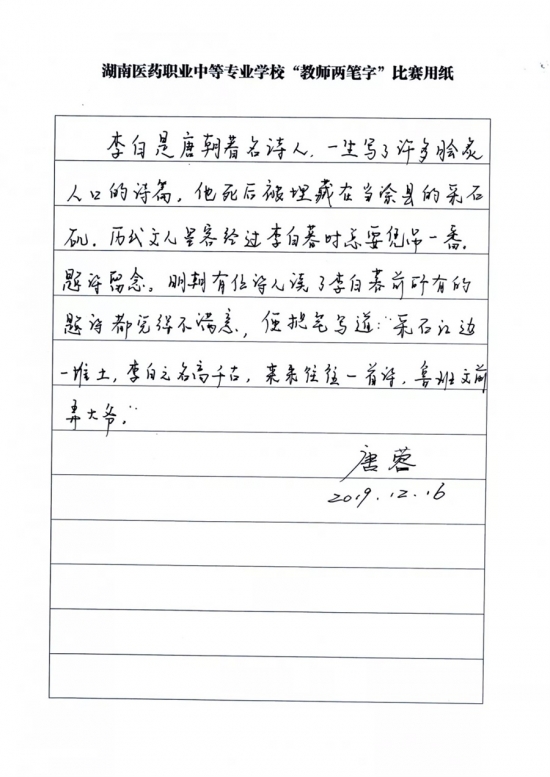 湖南医药职业中等专业学校“教师两笔字”比赛用纸
李白是唐朝着名诗人,一生写了许多脍炙
人口的诗篇,他死后被埋藏在当涂县的采石
矶.历代文人墨客经过李白暮时总要凭吊一番,
题诗留念。明朝有位诗人读了李白墓前所有的
题诗都觉得不满意,便把笔写道:“采石江边
一堆土,李白之名高千古,来来往往一首诗,鲁班文前
弄大爷。”
唐蓉
2019.12.16